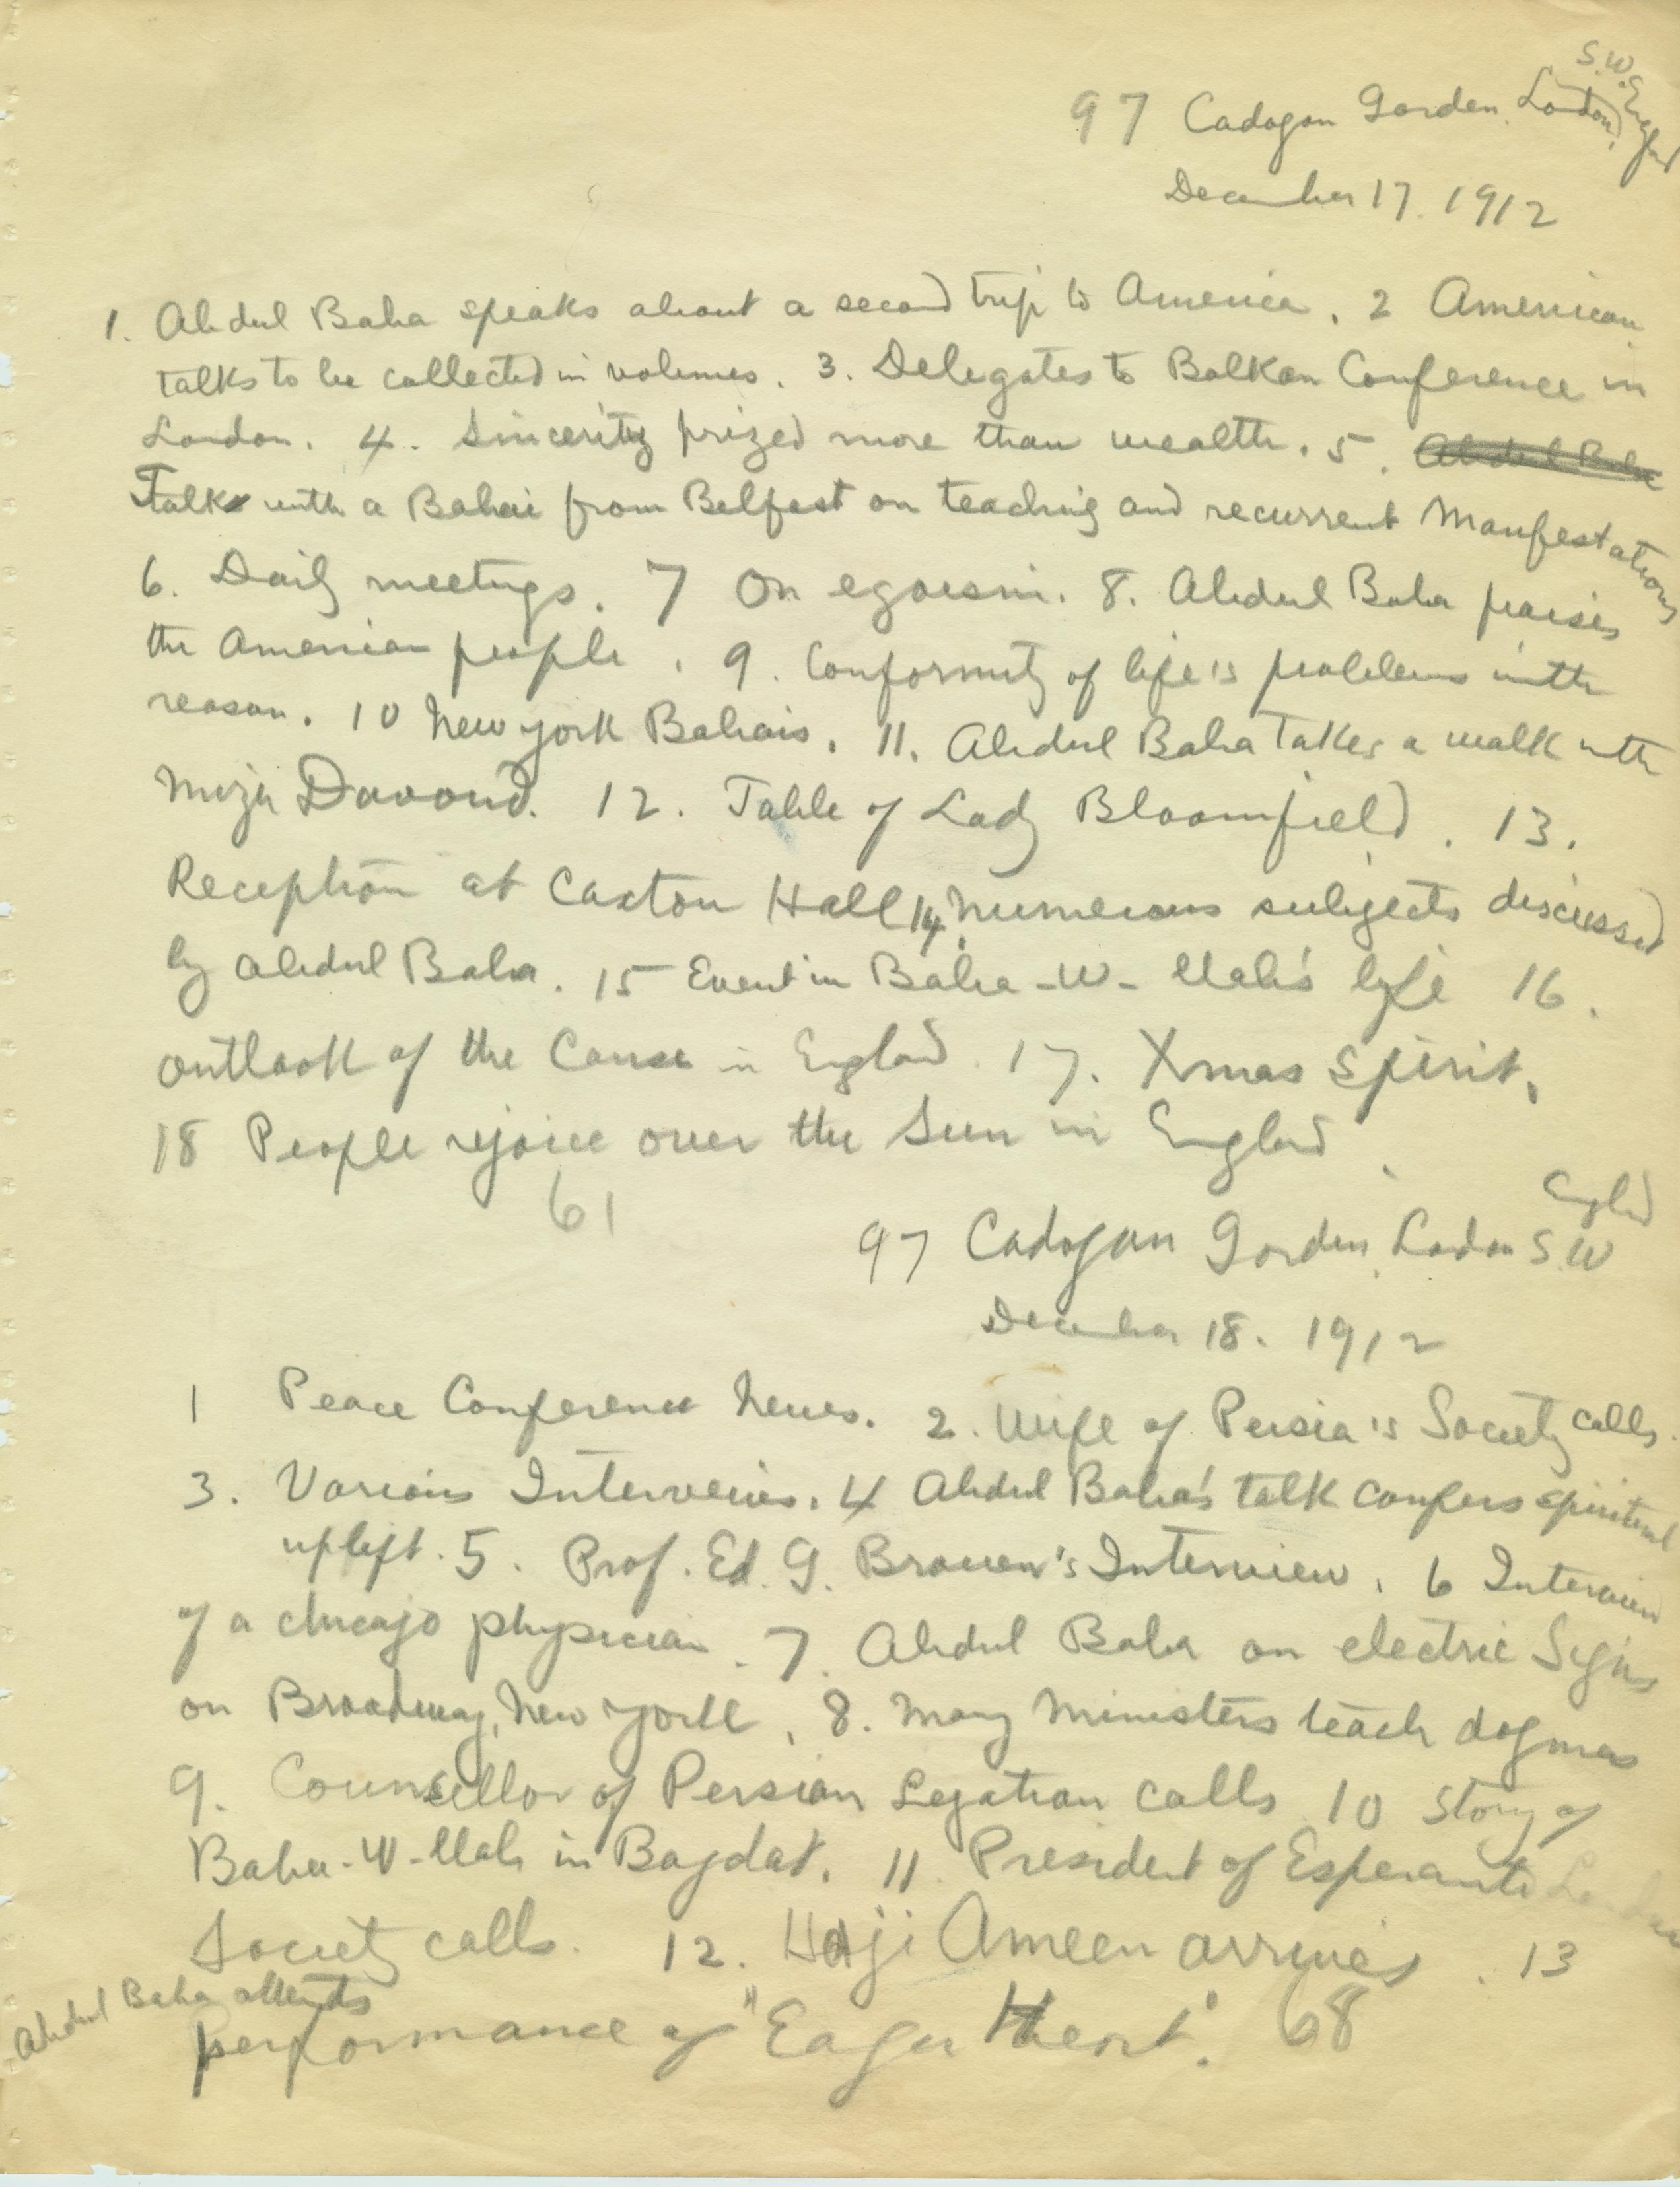 97 Cadogan Garden. London, S.W. England
December 17. 1912
1. Abdul Baha speaks about a second trip to America. 2 American
talks to be collected in volumes. 3. Delegates to Balkan Conference in
London. 4. Sincerity prized more than wealth. 5. Abdul Baha
Talk with a Bahai from Belfast on teaching and recurrent Manifestations
6. Daily meetings. 7 On egoism. 8. Abdul Baha praises
the American people. 9. Conformity of life's problems with
reason. 10 New York Bahais. 11. Abdul Baha Takes a walk with
Mirza Davoud. 12. Table of Lady Bloomfield. 13.
Reception at Caxton Hall 14. Numerous subjects discussed
by Abdul Baha. 15 Event in Baha-W-llah's life 16.
Outlook of the Cause in England 17. Xmas Spirit.
18 People rejoice over the Sun in England.
61
97 Cadogan Garden, London S.W England
December 18. 1912
1 Peace Conference News. 2. Wife of Persia's Society calls.
3. Various Interviews. 4 Abdul Baha's talk confers spiritual
uplift. 5. Prof. Ed. G. Browen's Interview. 6 Interview
of a Chicago physician. 7. Abdul Baha on electric Signs
on Broadway, New York. 8. Many Ministers teach dogmas
9. Counsellor of Persian Legation calls 10 Story of
Baha-W-llah in Bagdat. 11 President of Esperanto London
Society calls. 12. Haji Ameen arrives. 13
Abdul Baha attends
performance of "Eager Heart". 68